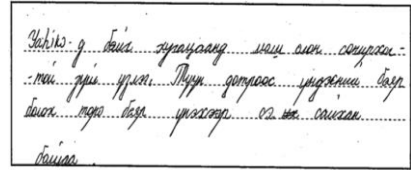 Yahiko-д байх хугацаанд маш олон сонирхол-
-той зүйл үзлээ. Түүн дотроос үндэсний баяр
болох төрө баяр үнэхээр сайхан
байлаа.